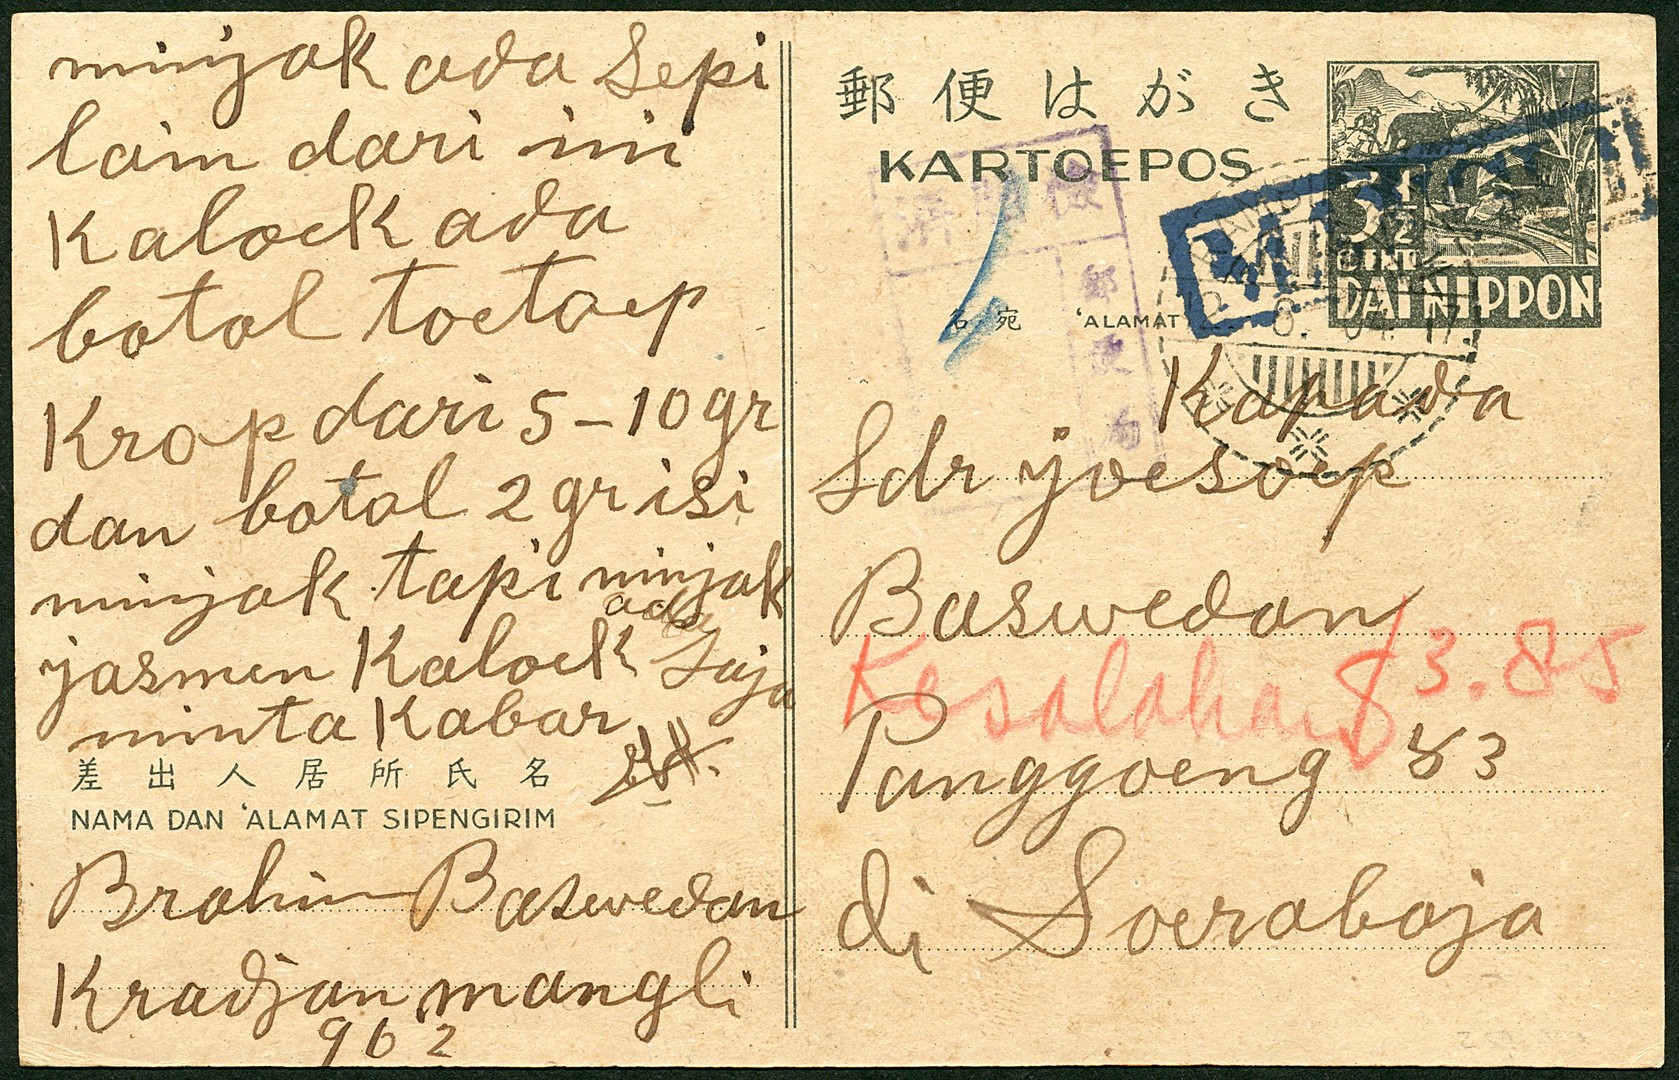 minjak ada sepi
lain dari ini
Kalock ada
botol toetoep
Krop dari 5-10 gr
dan botol 2 gr isi
minjak tapi minjak
ada
jasmen Kalock saja
minta Kabar
差出人居所氏名
NAMA DAN 'ALAMAT SIPENGIRIM
Brahim Baswedan
Kradjan mangli
962
郵便はがき
KARTOEPOS
3½
CENT
DAI NIPPON
検閲済
郵便局
名宛
'ALAMAT
8. 04. 17.
Kapada
Sdr joesoep
Baswedan
Kesalahan f 3.85
Panggoeng 83
di Soerabaja